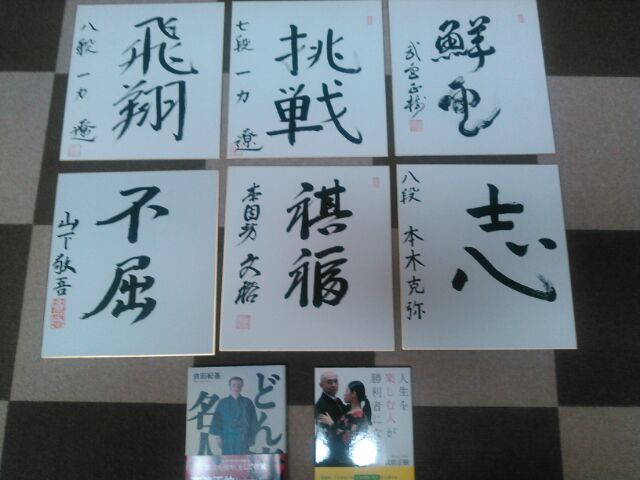 飛翔
八段 一力 遼
挑戦
七段 一力 遼
武宮正樹
不屈
山下敬吾
祺福
本因坊 文裕
志
八段 本木克弥
依田紀基
どん
名人
人生を
楽しむ人が
勝利者にな
武宮正樹